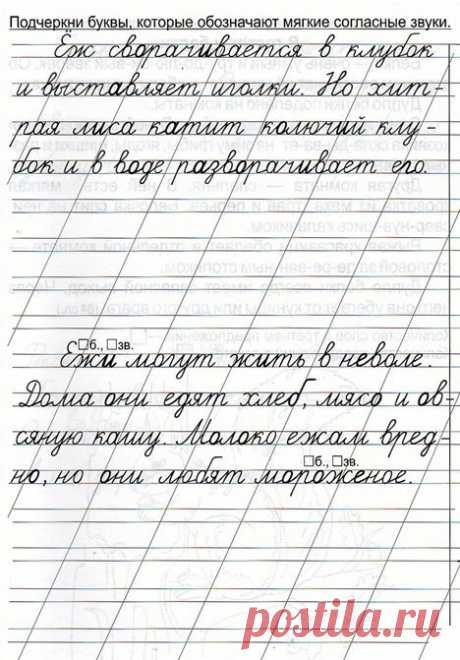 Подчеркни буквы, которые обозначают мягкие согласные звуки.
Ёж сворачивается в клубок
и выставляет иголки. Но хит-
рая лиса катит колючий клу-
бок и в воде разворачивает его.
□б., □зв.
Ежи могут жить в неволе.
Дома они едят хлеб, мясо и ов-
сяную кашу. Молоко ежам вред-
□б., □зв.
но, но они любят мороженое.
postila.ru